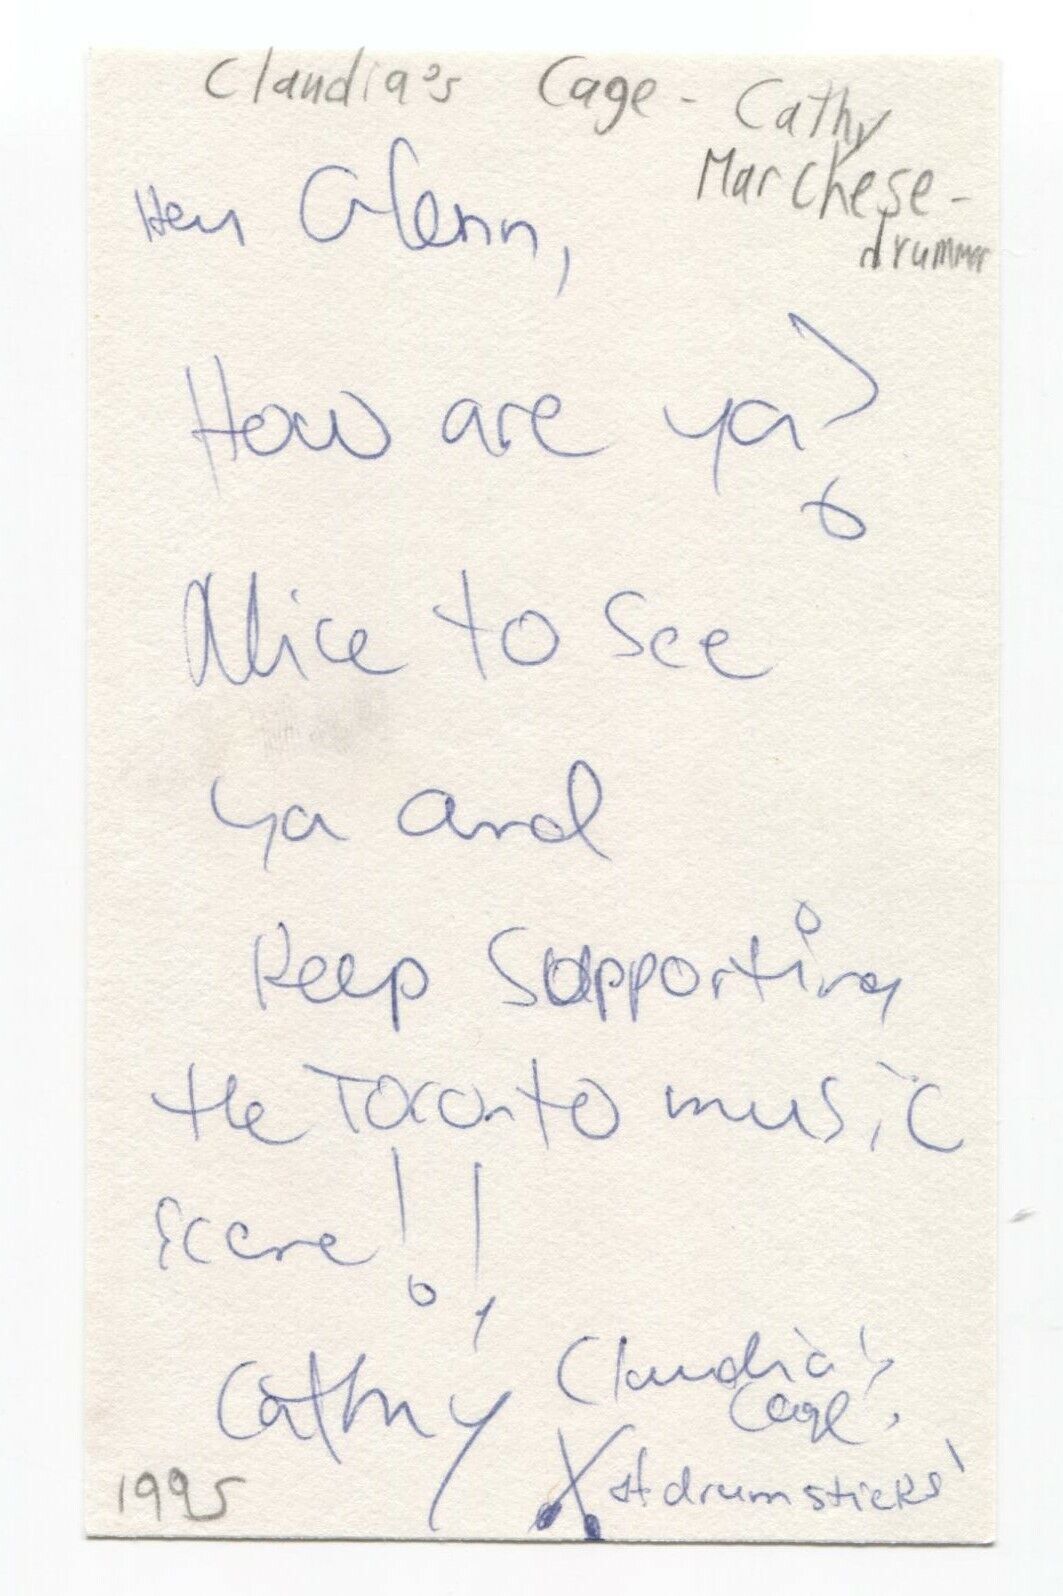 Claudia's Cage - Cathy
Marchese -
drummer
Hey Glenn,
How are ya?
Nice to see
ya and
Keep Supporting
the Toronto music
scene!!
Cathy Claudia's
Cage!
drumsticks'
1995